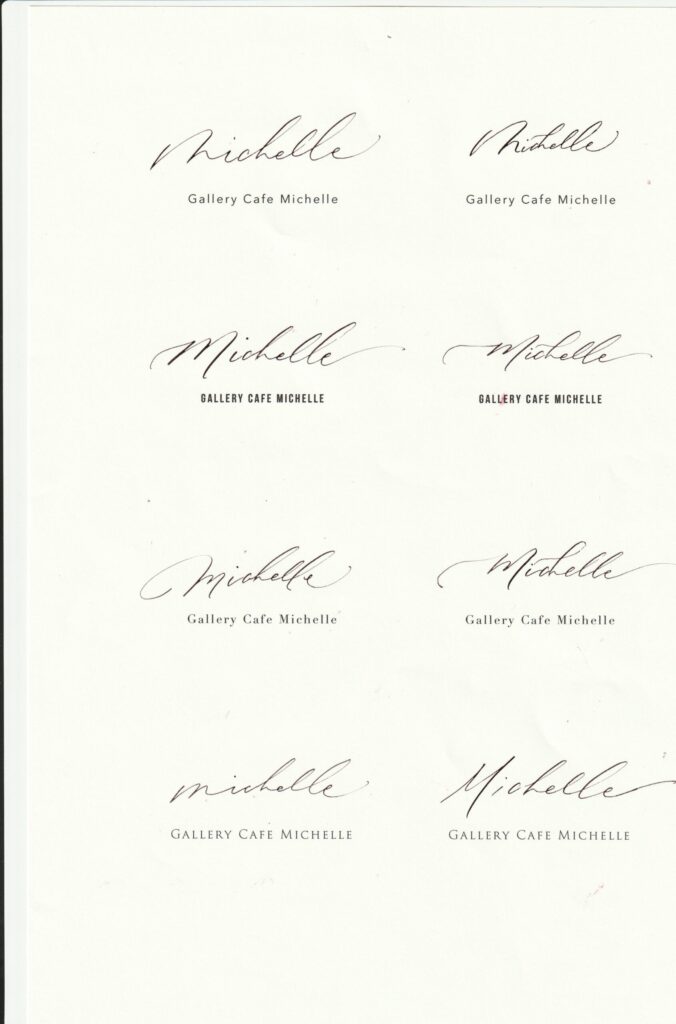 Michelle
Gallery Cafe Michelle
Michelle
Gallery Cafe Michelle
Michelle
GALLERY CAFE MICHELLE
Michelle
GALLERY CAFE MICHELLE
Michelle
Gallery Cafe Michelle
Michelle
Gallery Cafe Michelle
michelle
GALLERY CAFE MICHELLE
Michelle
GALLERY CAFE MICHELLE